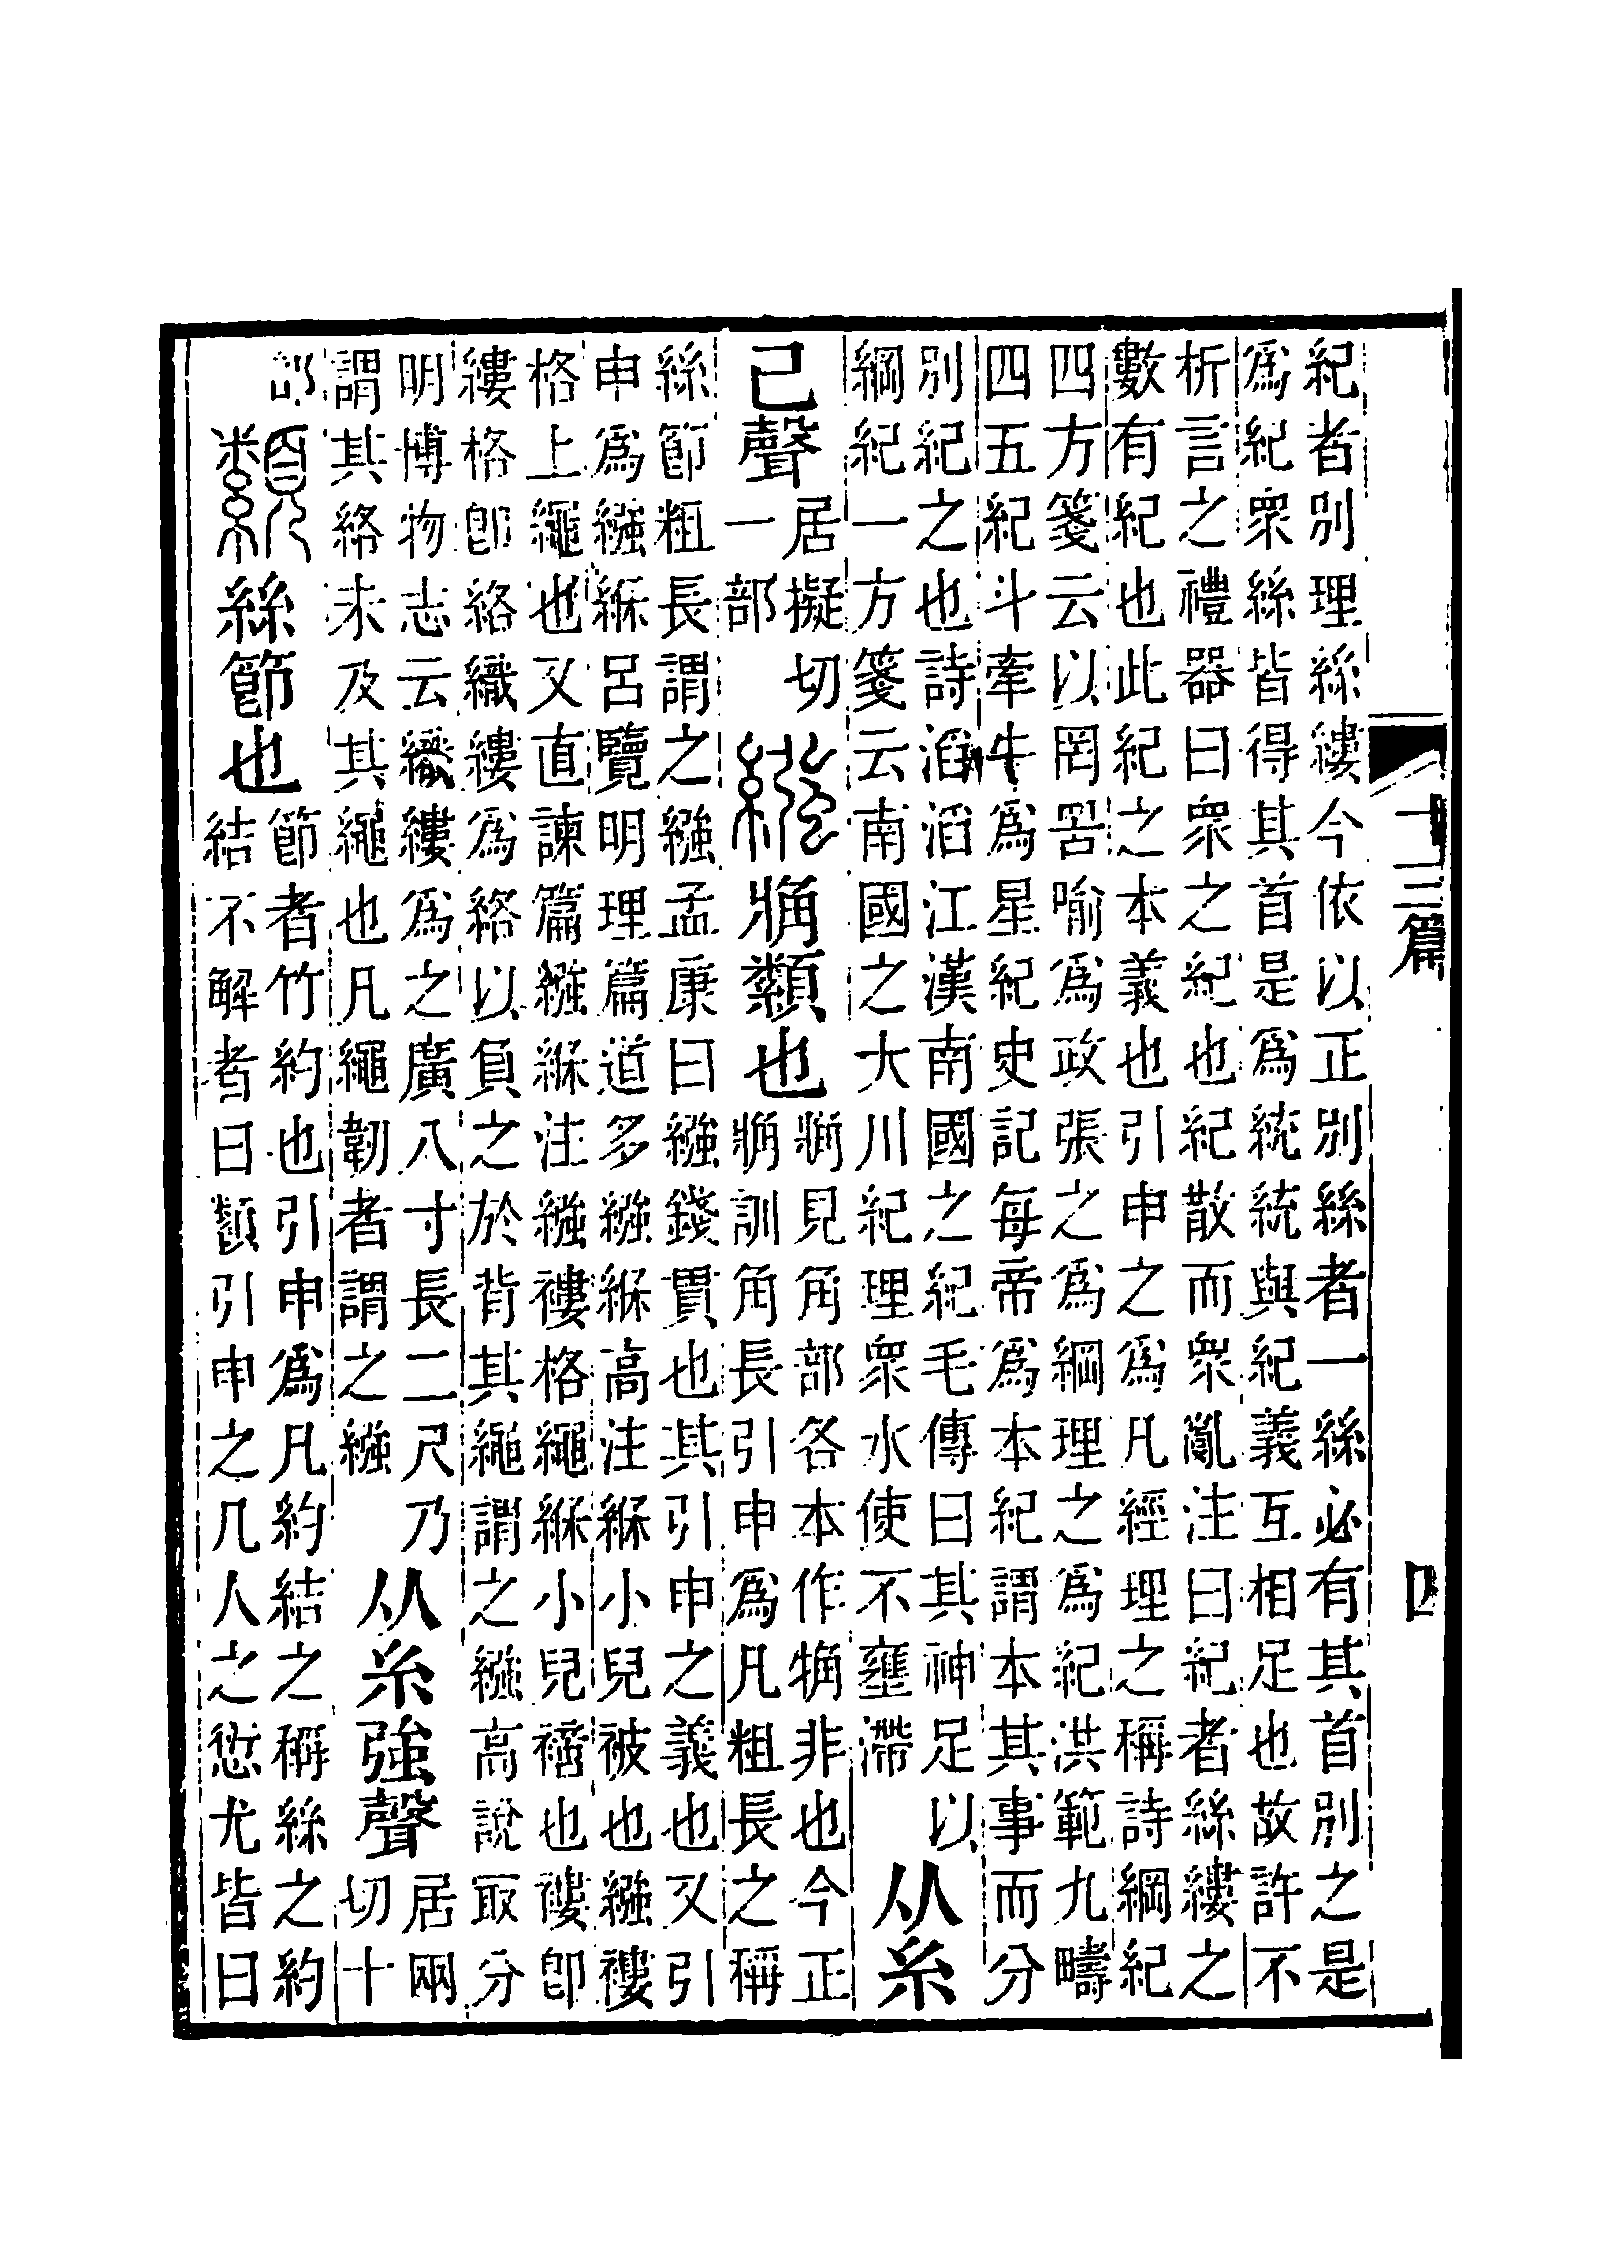 十三篇
四
紀者別理絲縷今依以正別絲者一絲必有其首別之是
爲紀眾絲皆得其首是爲統統與紀義互相足也故許不
析言之禮器曰眾之紀也紀散而眾亂注曰紀者絲縷之
數有紀也此紀之本義也引申之爲凡經理之稱詩綱紀
四方箋云以罔罟喻爲政張之爲綱理之爲紀洪範九疇
四五紀斗牽牛爲星紀史記每帝爲本紀謂本其事而分
別紀之也詩滔滔江漢南國之紀毛傳曰其神足以
綱紀一方箋云南國之大川紀理眾水使不壅滯
从糸
己聲
居擬切
一部
繈
𧣪類也
𧣪見角部各本作觕非也今正
𧣪訓角長引申爲凡粗長之稱
絲節粗長謂之繈孟康曰繈錢貫也其引申之義也又引
申爲繈緥呂覽明理篇道多繈緥高注緥小兒被也繈褸
格上繩也又直諫篇繈緥注繈褸格繩緥小兒䙀也褸即
縷格即絡織縷爲絡以負之於背其繩謂之繈高說最分
明博物志云織縷爲之廣八寸長二尺乃
謂其絡未及其繩也凡繩韌者謂之繈
从糸強聲
居兩
切十
部
纇
絲節也
節者竹約也引申爲凡約結之稱絲之約
結不解者曰纇引申之凡人之愆尤皆曰